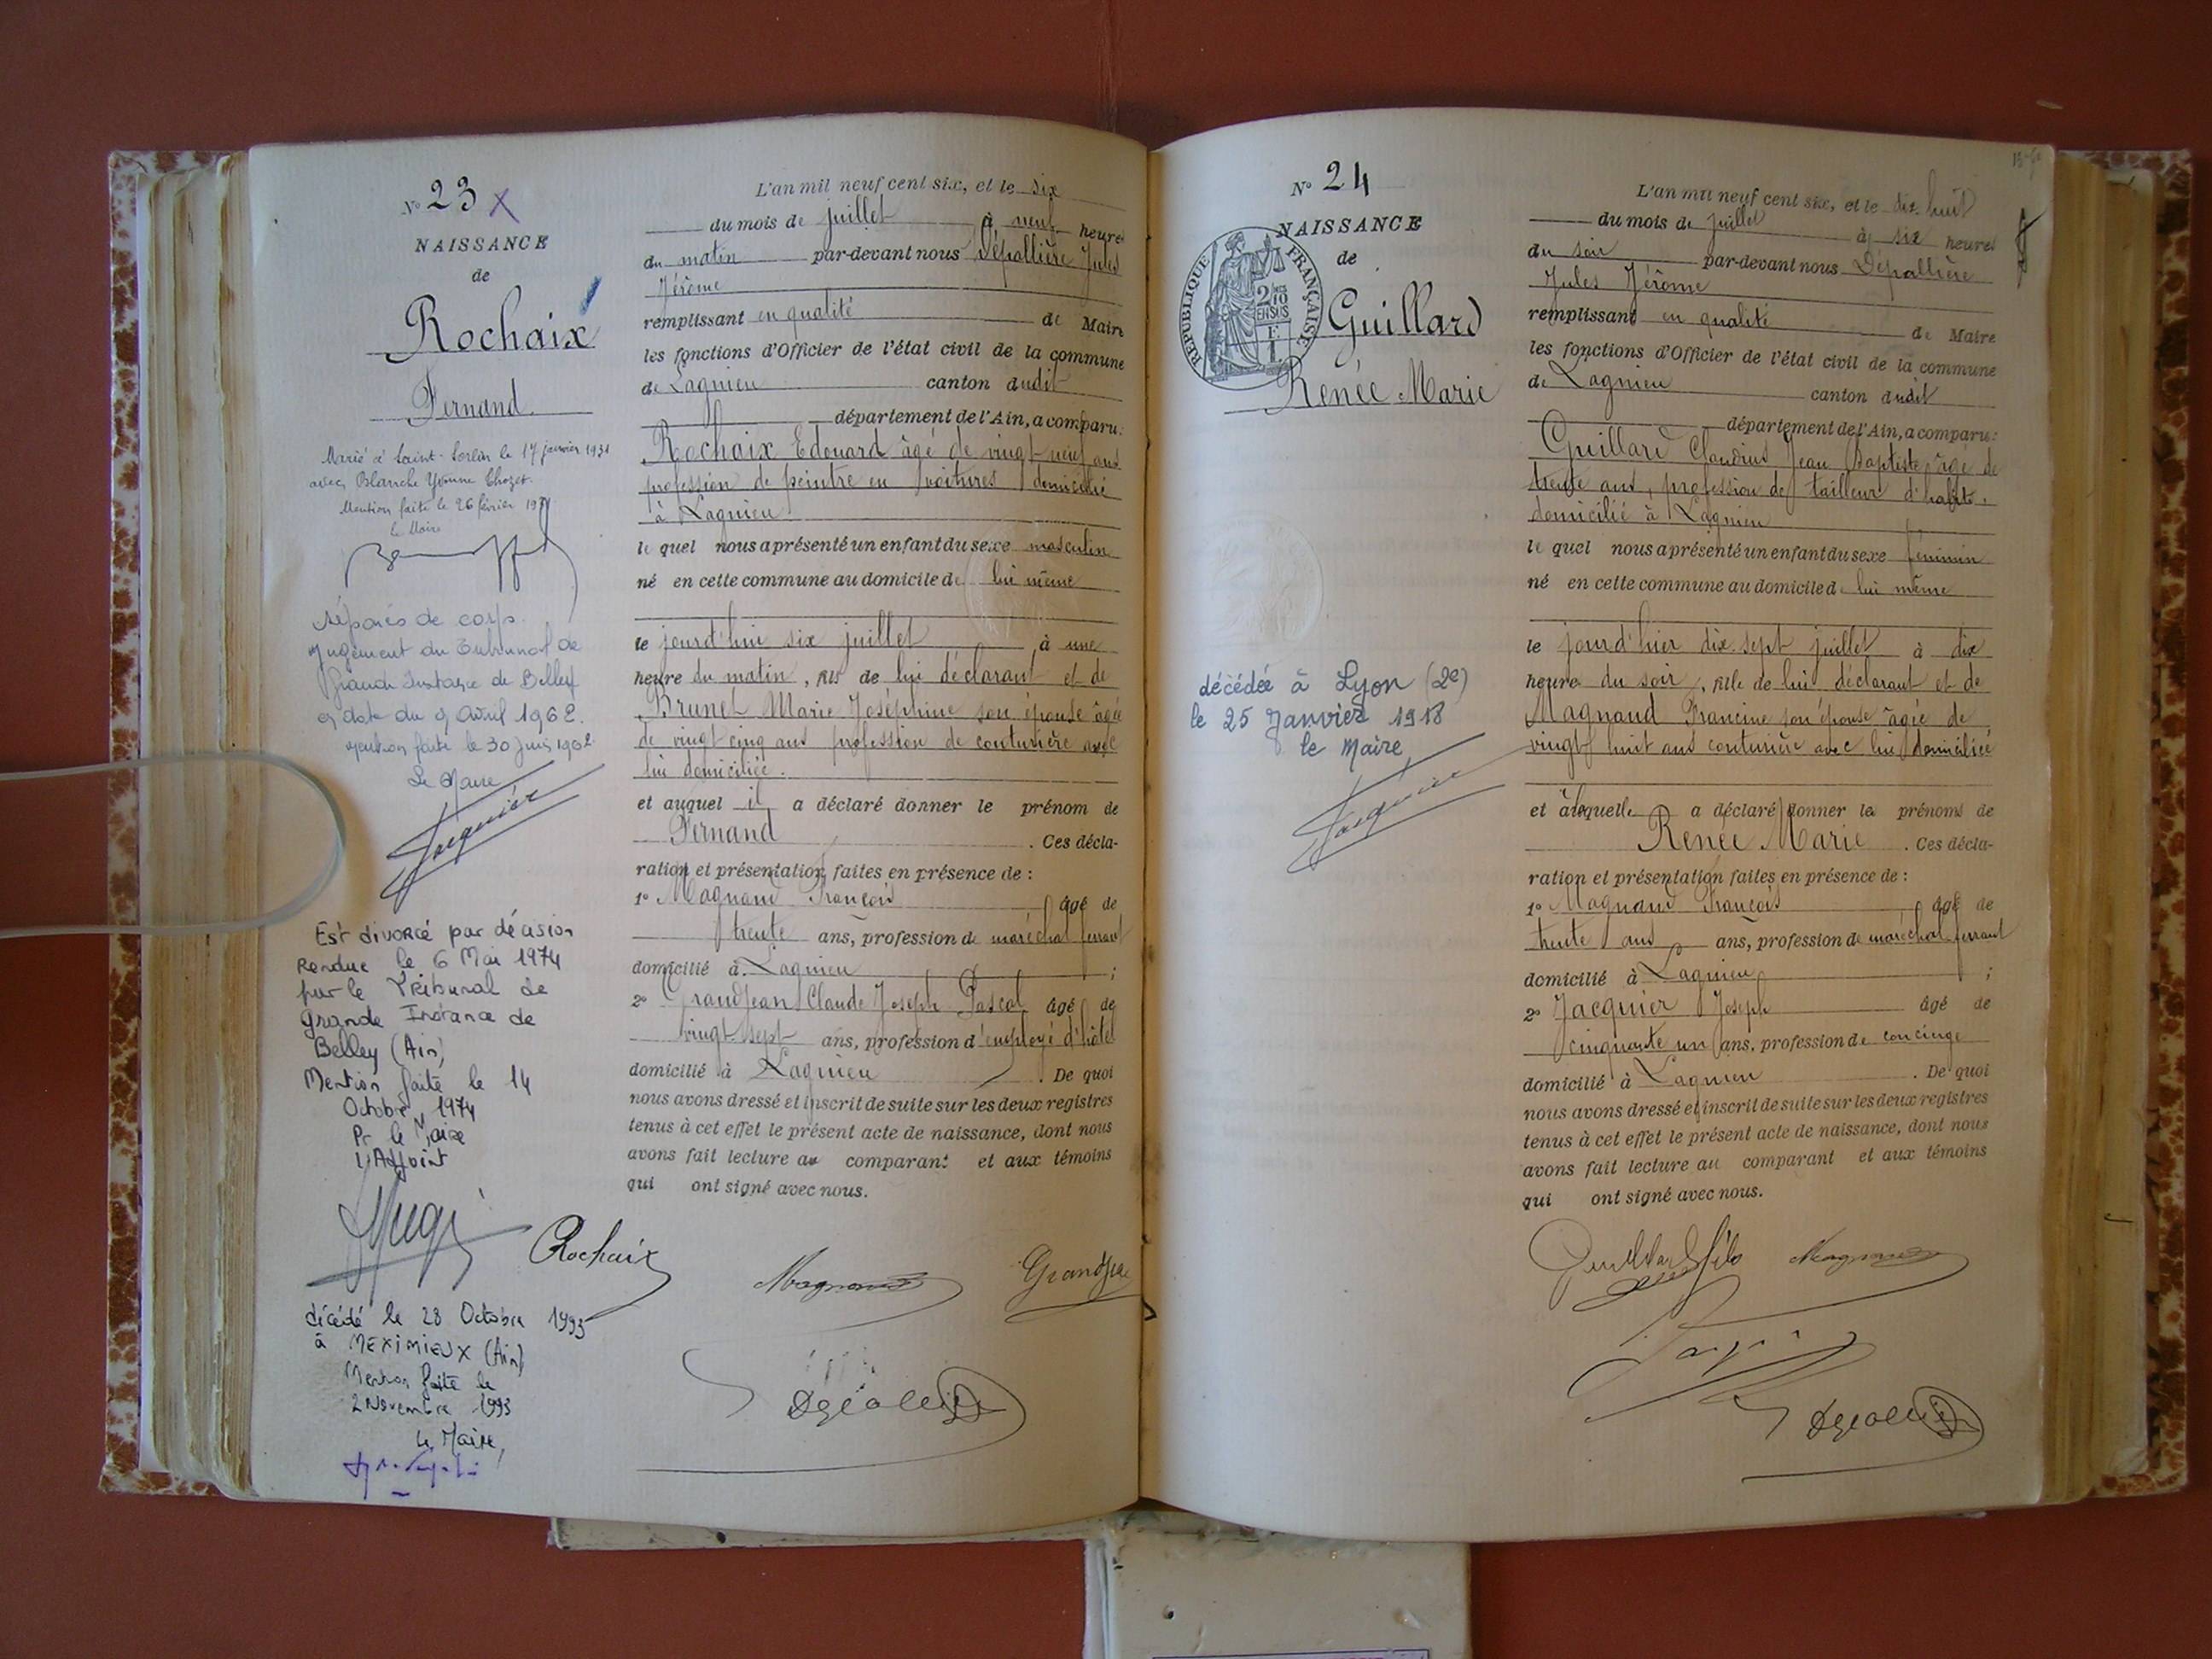 N° 23 X
NAISSANCE
de
Rochaix
Fernand
Marié à Saint-Sorlin le 17 janvier 1931
avec Blanche Yvonne
Mention faite le 26 février 1931
le Maire
séparés de corps
jugement du Tribunal de
Grande Instance de Belley
en date du 9 Avril 1962.
mention faite le 30 Juin 1962
Le Maire
Jacquier
Est divorcé par décision
Rendue le 6 Mai 1974
par le Tribunal de
Grande Instance de
Belley (Ain)
Mention faite le 14
Octobre 1974
Pr le Maire
L'Adjoint
décédé le 28 Octobre 1993
à MEXIMIEUX (Ain)
Mention faite le
2 Novembre 1993
Le Maire,
L'an mil neuf cent six, et le six
du mois de juillet à neuf heures
du matin par-devant nous Dépallière Jules
Jérôme
remplissant en qualité de Maire
les fonctions d'Officier de l'état civil de la commune
de Lagnieu canton dudit
département de l'Ain, a comparu:
Rochaix Edouard âgé de vingt neuf ans
profession de peintre en voitures domicilié
à Lagnieu
le quel nous a présenté un enfant du sexe masculin
né en cette commune au domicile de lui même
le jourd'hui six juillet à une
heure du matin, fils de lui déclarant et de
Brunet Marie Joséphine son épouse âgée
de vingt cinq ans profession de couturière avec
lui domiciliée.
et auquel il a déclaré donner le prénom de
Fernand . Ces décla-
ration et présentation faites en présence de :
1° Magnand François âgé de
trente ans, profession de maréchal ferrant
domicilié à Lagnieu ;
2° Grandjean Claude Joseph Pascal âgé de
vingt sept ans, profession d'employé d'hôtel
domicilié à Lagnieu . De quoi
nous avons dressé et inscrit de suite sur les deux registres
tenus à cet effet le présent acte de naissance, dont nous
avons fait lecture au comparant et aux témoins
qui ont signé avec nous.
Rochaix Magnand Grandjea
N° 24
NAISSANCE
de
RÉPUBLIQUE FRANÇAISE
2/10 EN SUS
Guillard
Renée Marie
décédée à Lyon (2e)
le 25 Janvier 1918
le Maire
Jacquier
L'an mil neuf cent six, et le dix huit
du mois de juillet à six heures
du soir par-devant nous Dépallière
Jules Jérôme
remplissant en qualité de Maire
les fonctions d'Officier de l'état civil de la commune
de Lagnieu canton dudit
département de l'Ain, a comparu:
Guillard Claudius Jean Baptiste âgé de
trente ans, profession de tailleur d'habits.
domicilié à Lagnieu
le quel nous a présenté un enfant du sexe féminin
né en cette commune au domicile de lui même
le jourd'hier dix sept juillet à dix
heures du soir, fille de lui déclarant et de
Magnand Francine son épouse âgée de
vingt huit ans couturière avec lui domiciliée
et à laquelle a déclaré donner les prénoms de
Renée Marie . Ces décla-
ration et présentation faites en présence de :
1° Magnand François âgé de
trente ans ans, profession de maréchal ferrant
domicilié à Lagnieu ;
2° Jacquier Joseph âgé de
cinquante un ans, profession de concierge
domicilié à Lagnieu . De quoi
nous avons dressé et inscrit de suite sur les deux registres
tenus à cet effet le présent acte de naissance, dont nous
avons fait lecture au comparant et aux témoins
qui ont signé avec nous.
Guillard fils Magnand